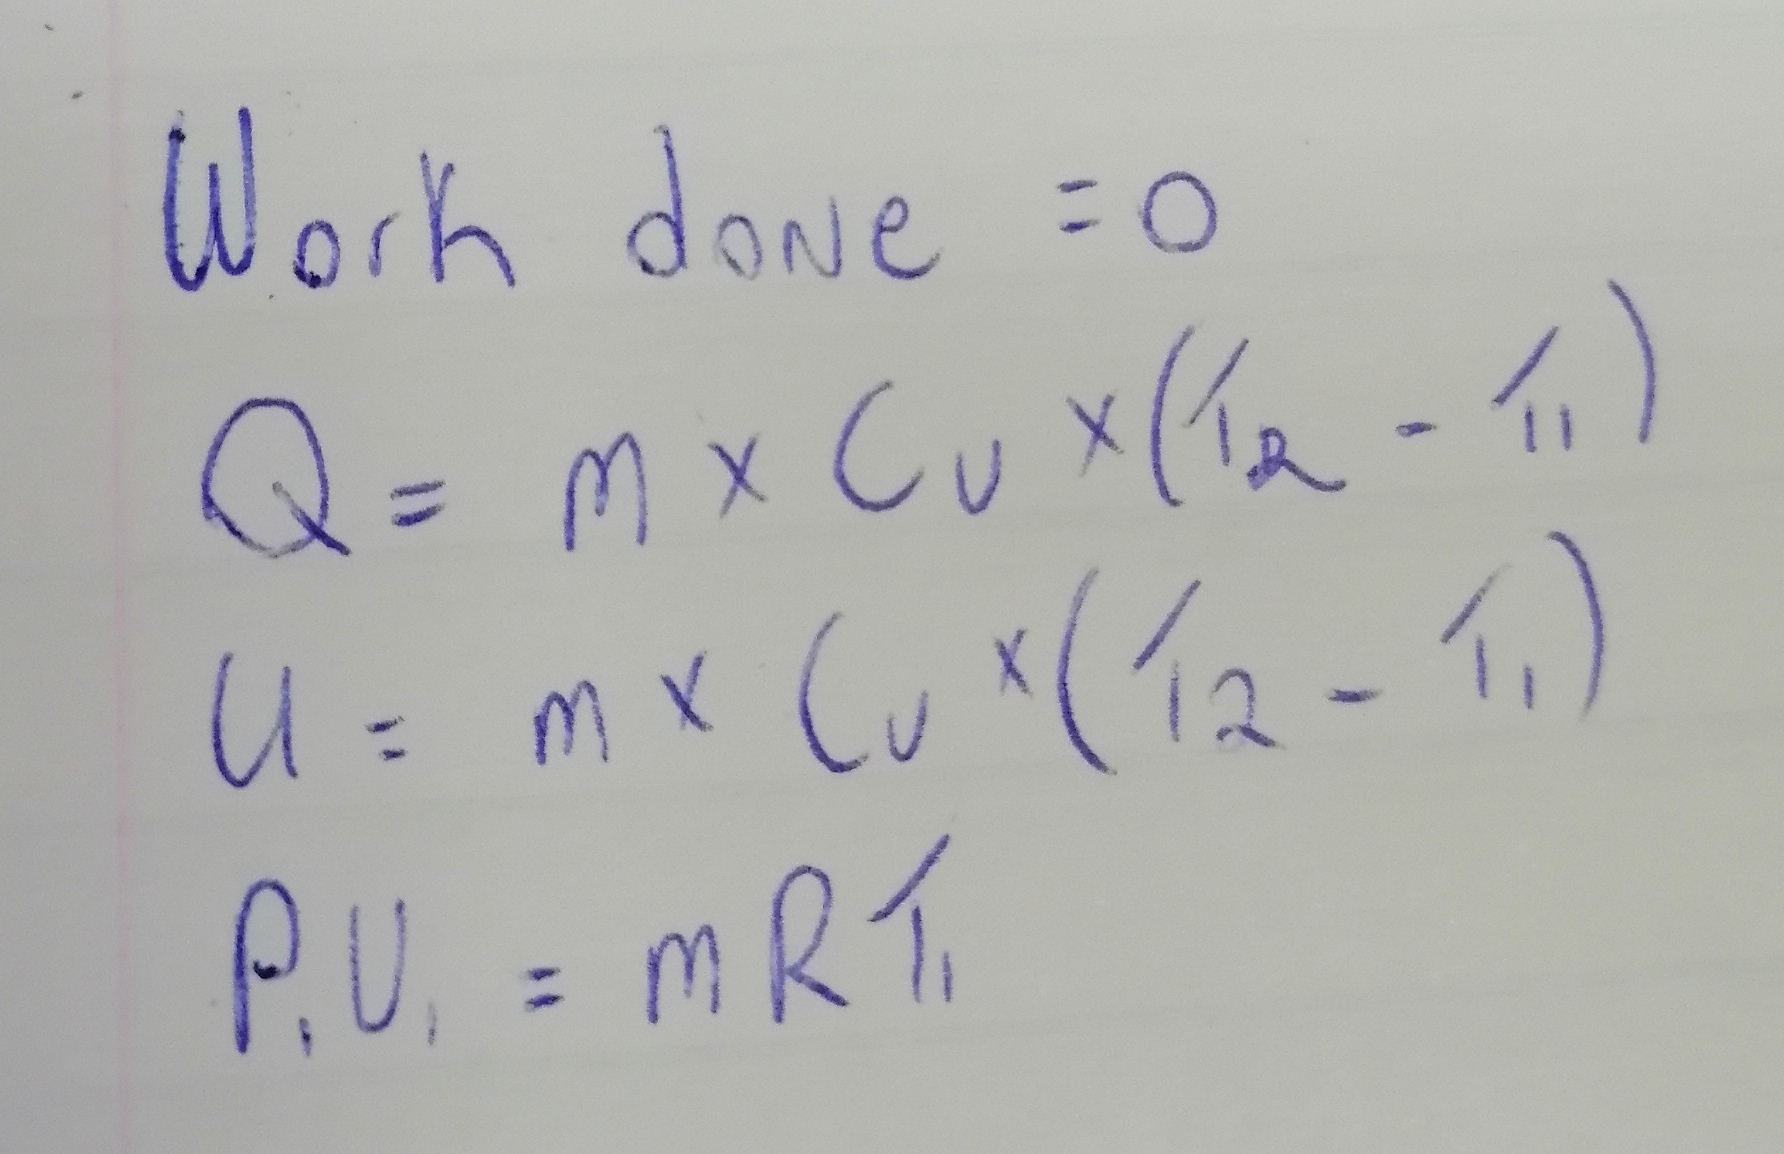 Work done = 0
Q = m × Cv × (T2 - T1)
U = m × Cv × (T2 - T1)
P1V1 = mRT1